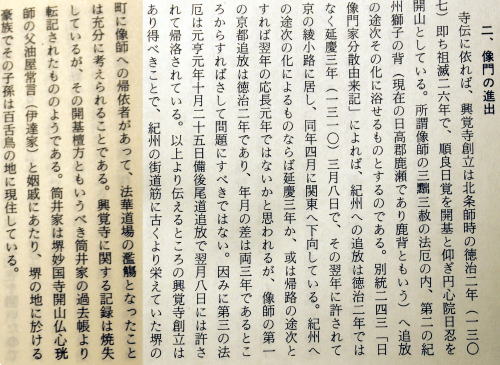 二、像門の進出
寺伝に依れば、興覚寺創立は北条師時の徳治二年（一三〇
七）即ち祖滅二六年で、順良日覚を開基と仰ぎ円心院日忍を
開山としている。所謂像師の三黜三赦の法厄の内、第二の紀
州獅子の背（現在の日高郡鹿瀬であり鹿背ともいう）へ追放
の途次その化に浴せるものとするのである。別統二四三「日
像門家分散由来記」によれば、紀州への追放は徳治二年では
なく延慶三年（一三一〇）三月八日で、その翌年に許されて
京の綾小路に居し、同年四月に関東へ下向している。紀州へ
の途次の化によるものならば延慶三年か、或は帰路の途次と
すれば翌年の応長元年ではないかと思われるが、像師の第一
の京都追放は徳治二年であり、年月の差は両三年であるとこ
ろからすればさして問題にすべきではない。因みに第三の法
厄は元亨元年十月二十五日備後尾道追放で翌月八日には許さ
れて帰洛されている。以上より伝えるところの興覚寺創立は
あり得べきことで、紀州の街道筋に古くより栄えていた堺の
町に像師への帰依者があって、法華道場の濫觴となったこと
は充分に考えられることである。興覚寺に関する記録は焼失
しているが、その開基檀方ともいうべき筒井家の過去帳より
転記されたもののようである。筒井家は堺妙国寺開山仏心珖
師の父油屋常言（伊達家）と姻戚にあたり、堺の地に於ける
豪族でその子孫は百舌鳥の地に現住している。